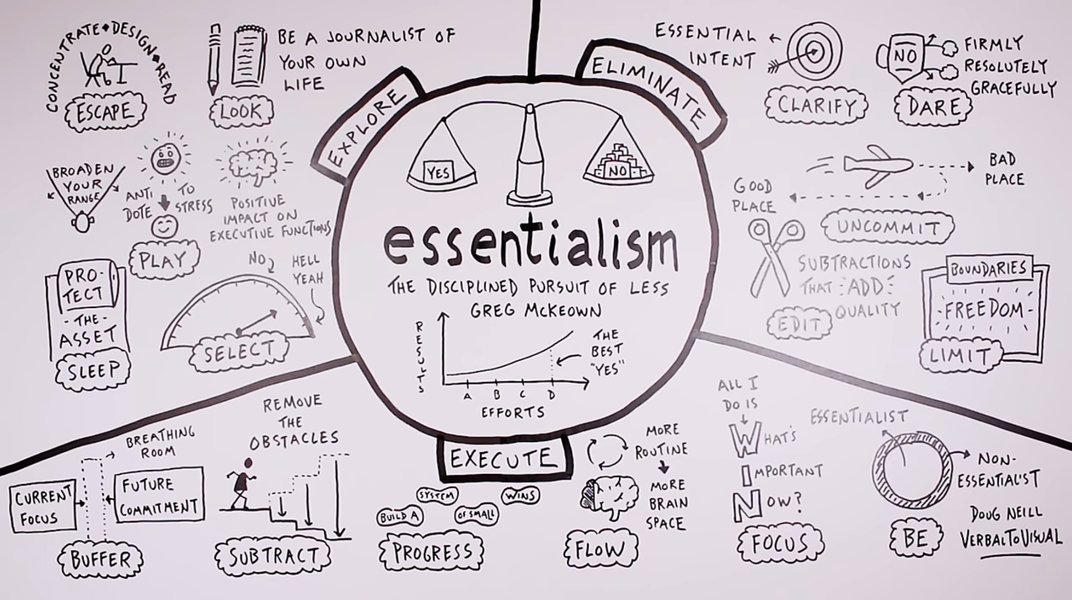 CONCENTRATE • DESIGN • READ
ESCAPE
BE A JOURNALIST OF
YOUR OWN
LIFE
LOOK
BROADEN
YOUR
RANGE
ANTI
DOTE
TO
STRESS
PLAY
POSITIVE
IMPACT ON
EXECUTIVE FUNCTIONS
PRO-
TECT
-THE-
ASSET
SLEEP
NO
HELL
YEAH
SELECT
EXPLORE
ELIMINATE
YES
NO
essentialism
THE DISCIPLINED PURSUIT OF LESS
GREG McKEOWN
RESULTS
A B C D
EFFORTS
THE
BEST
"YES"
ESSENTIAL
INTENT
CLARIFY
NO
FIRMLY
RESOLUTELY
GRACEFULLY
DARE
BAD
PLACE
GOOD
PLACE
UNCOMMIT
SUBTRACTIONS
THAT ADD
QUALITY
EDIT
BOUNDARIES
FREEDOM
LIMIT
EXECUTE
BREATHING
ROOM
CURRENT
FOCUS
FUTURE
COMMITMENT
BUFFER
REMOVE
THE
OBSTACLES
SUBTRACT
BUILD A
SYSTEM
OF SMALL
WINS
PROGRESS
MORE
ROUTINE
MORE
BRAIN
SPACE
FLOW
ALL I
DO IS
WHAT'S
IMPORTANT
NOW?
FOCUS
ESSENTIALIST
NON-
ESSENTIALIST
BE
DOUG NEILL
VERBALTOVISUAL